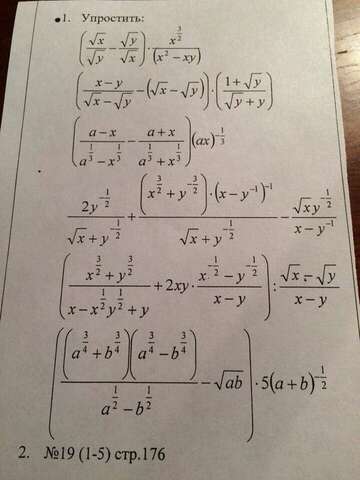 1. Упростить:
(√x/√y − √y/√x) · x^(3/2)/(x² − xy)
((x − y)/(√x − √y) − (√x − √y)) · ((1 + √y)/(√y + y))
((a − x)/(a^(1/3) − x^(1/3)) − (a + x)/(a^(1/3) + x^(1/3))) (ax)^(−1/3)
2y^(−1/2)/(√x + y^(−1/2)) + (x^(3/2) + y^(−3/2)) · (x − y^(−1))^(−1)/(√x + y^(−1/2)) − √x y^(−1/2)/(x − y^(−1))
((x^(3/2) + y^(3/2))/(x − x^(1/2)y^(1/2) + y) + 2xy · (x^(−1/2) − y^(−1/2))/(x − y)) : (√x − √y)/(x − y)
((a^(3/4) + b^(3/4))(a^(3/4) − b^(3/4))/(a^(1/2) − b^(1/2)) − √ab) · 5(a + b)^(−1/2)
2. №19 (1-5) стр.176